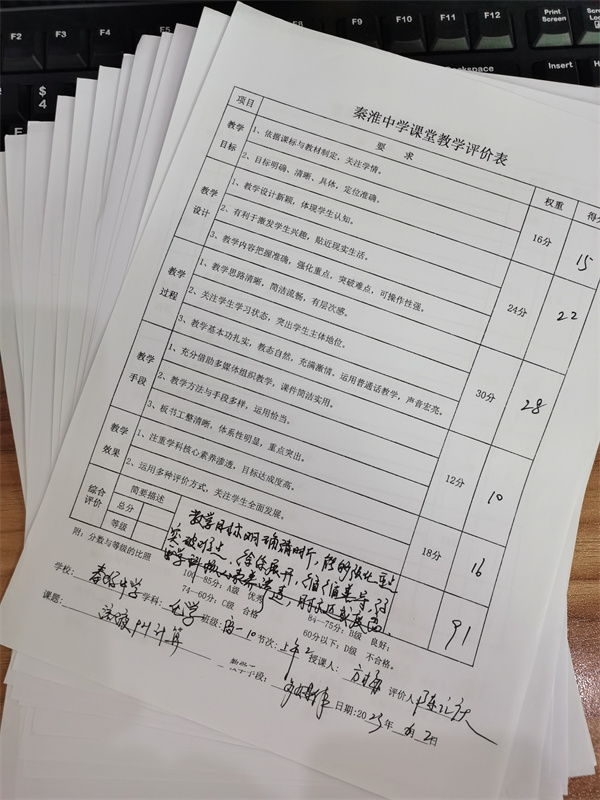 F2 F3 F4 F9 F10 F11 F12 Print Screen Scroll Lock
Insert
$ 4
秦淮中学课堂教学评价表
项目 要 求 权重
教学目标 1、依据课标与教材制定，关注学情。
2、目标明确、清晰、具体，定位准确。 16分 15
教学设计 1、教学设计新颖，体现学生认知。
2、有利于激发学生兴趣，贴近现实生活。
3、教学内容把握准确，强化重点，突破难点，可操作性强。 24分 22
教学过程 1、教学思路清晰，简洁流畅，有层次感。
2、关注学生学习状态，突出学生主体地位。
3、教学基本功扎实，教态自然，充满激情。运用普通话教学，声音宏亮。 30分 28
教学手段 1、充分借助多媒体组织教学，课件简洁实用。
2、教学方法与手段多样，运用恰当。
3、板书工整清晰，体系性明显，重点突出。 12分 10
教学效果 1、注重学科核心素养渗透，目标达成度高。
2、运用多种评价方式，关注学生全面发展。 18分 16
综合评价 简要描述
总分
等级
教学目标明确清晰，
91
附：分数与等级的比照 100—85分：A级 优秀 84—75分：B级 良好；
74—60分：C级 合格 60分以下：D级 不合格。
学校： 中学 学科： 化学 班级： 高一10 节次： 上午2 授课人： 评价人
课题： 溶液pH计算 教学手段： 日期：2023年 2日